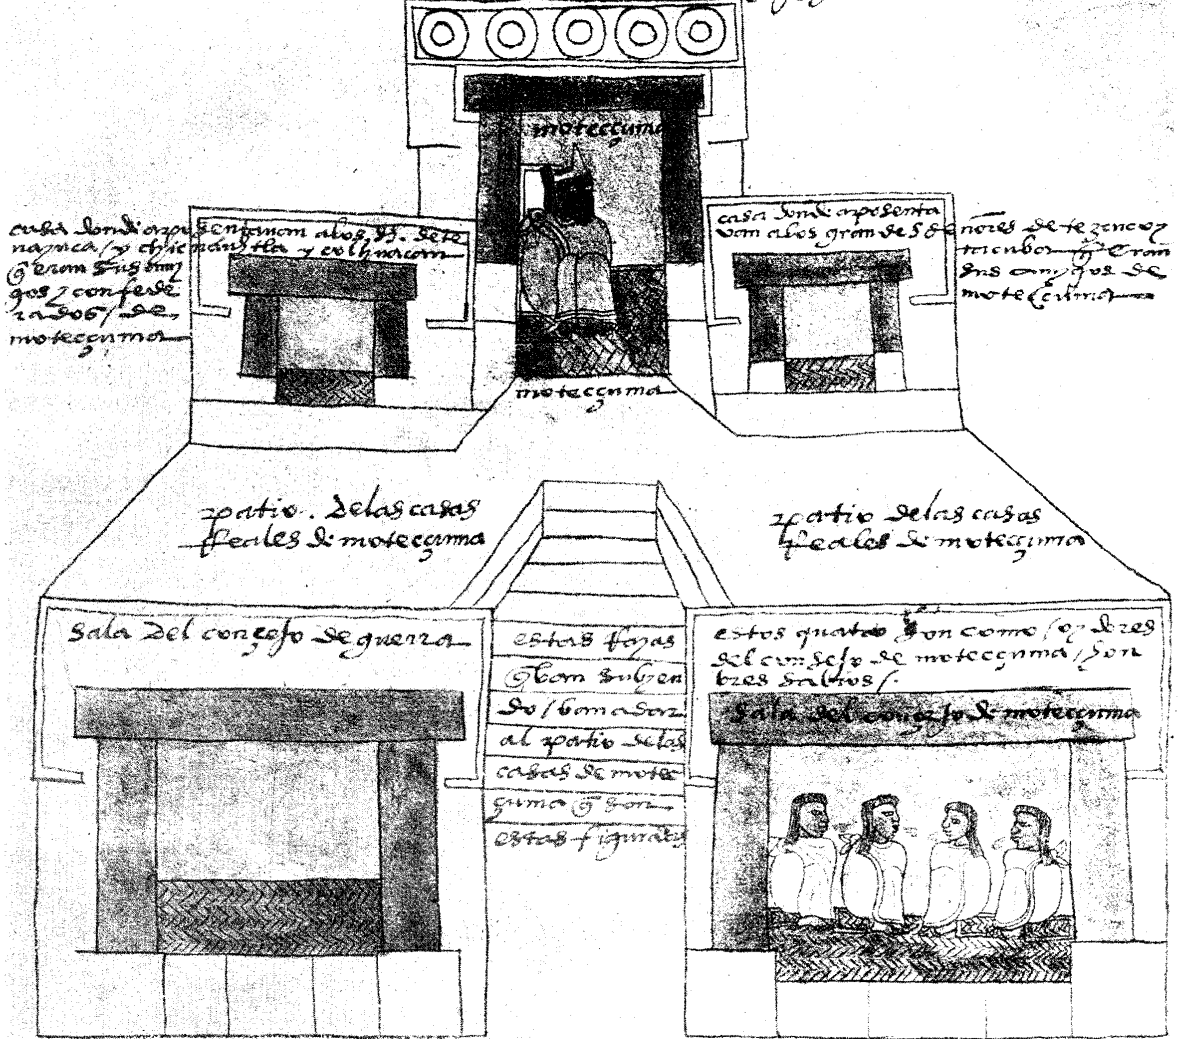 moteccuma
casa donde aposentauan a los sres. de te
nayuca / y chicnauhtla y colhuacan
q̄ eran sus ami
gos y confede
rados / de
moteccuma
casa donde aposenta
van a los grandes señores de tezcuco y
tacuba q̄ eran
sus amigos de
moteccuma
moteccuma
patio. de las casas
Reales de moteccuma
patio de las casas
Reales de moteccuma
Sala del consejo de guerra
estas Rayas
q̄ van subyen
do / van a dar
al patio de las
casas de motec
çuma q̄ son
estas figuradas
estos quatro son como / oydores
del consejo de moteccuma / hon
bres sabios /.
Sala del consejo de moteccuma